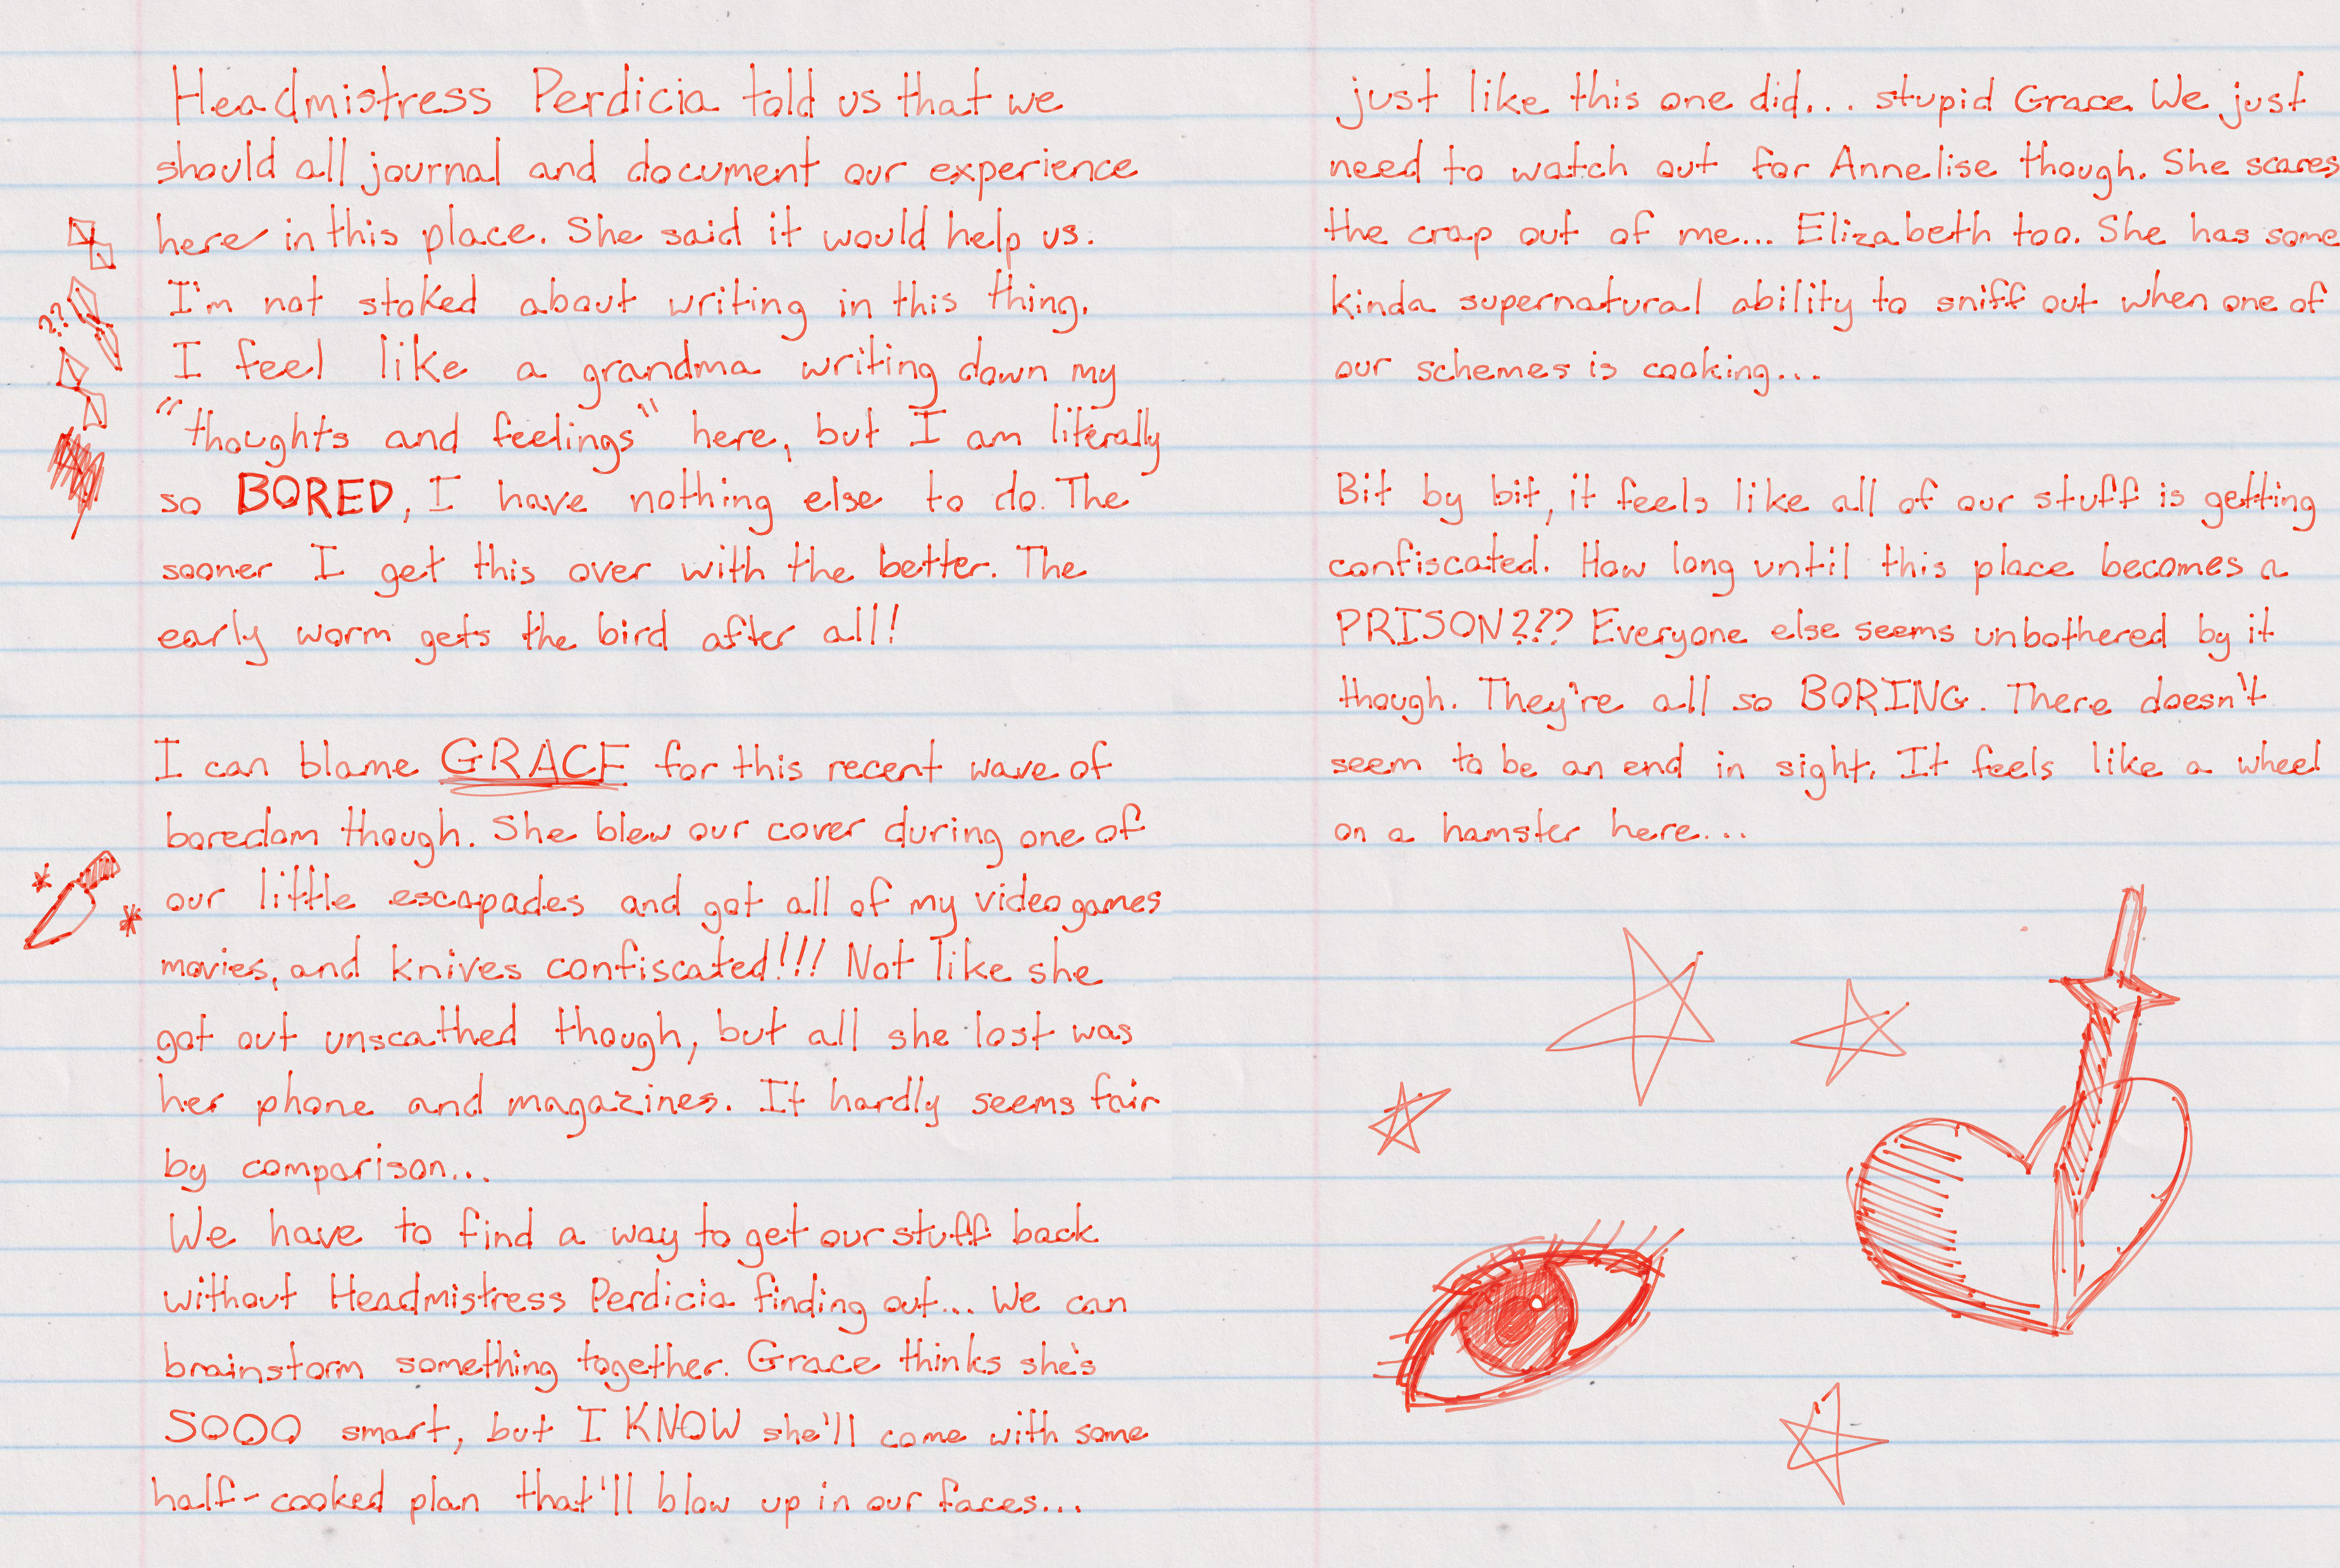 Headmistress Perdicia told us that we
should all journal and document our experience
here in this place. She said it would help us.
I'm not stoked about writing in this thing.
??
I feel like a grandma writing down my
"thoughts and feelings" here, but I am literally
so BORED, I have nothing else to do. The
sooner I get this over with the better. The
early worm gets the bird after all!
I can blame GRACE for this recent wave of
boredom though. She blew our cover during one of
our little escapades and got all of my video games
movies, and knives confiscated!!! Not like she
got out unscathed though, but all she lost was
her phone and magazines. It hardly seems fair
by comparison...
We have to find a way to get our stuff back
without Headmistress Perdicia finding out... We can
brainstorm something together. Grace thinks she's
SOOO smart, but I KNOW she'll come with some
half-cooked plan that'll blow up in our faces...
just like this one did... stupid Grace. We just
need to watch out for Annelise though. She scares
the crap out of me... Elizabeth too. She has some
kinda supernatural ability to sniff out when one of
our schemes is cooking...
Bit by bit, it feels like all of our stuff is getting
confiscated. How long until this place becomes a
PRISON??? Everyone else seems unbothered by it
though. They're all so BORING. There doesn't
seem to be an end in sight. It feels like a wheel
on a hamster here...